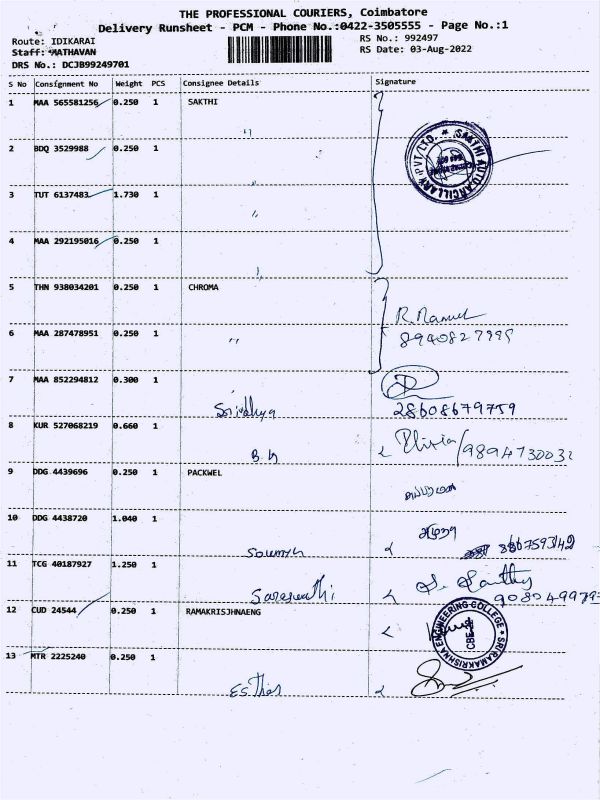 THE PROFESSIONAL COURIERS, Coimbatore
Delivery Runsheet - PCM - Phone No.:0422-3505555 - Page No.:1
Route: IDIKARAI RS No.: 992497
Staff: MATHAVAN RS Date: 03-Aug-2022
DRS No.: DCJB99249701
S No Consignment No Weight PCS Consignee Details Signature
1 MAA 565581256 0.250 1 SAKTHI
"
2 BDQ 3529988 0.250 1
"
3 TUT 6137483 1.730 1
"
4 MAA 292195016 0.250 1
"
5 THN 938034201 0.250 1 CHROMA
6 MAA 287478951 0.250 1 "
7 MAA 852294812 0.300 1
Srividhya 28608679759
8 KUR 527068219 0.660 1
9 DDG 4439696 0.250 1 PACKWEL
10 DDG 4438720 1.040 1
Sowmya
11 TCG 40187927 1.250 1
Saraswathi
12 CUD 24544 0.250 1 RAMAKRISJHNAENG
SRI RAMAKRISHNA ENGINEERING COLLEGE
13 MTR 2225240 0.250 1
Esther